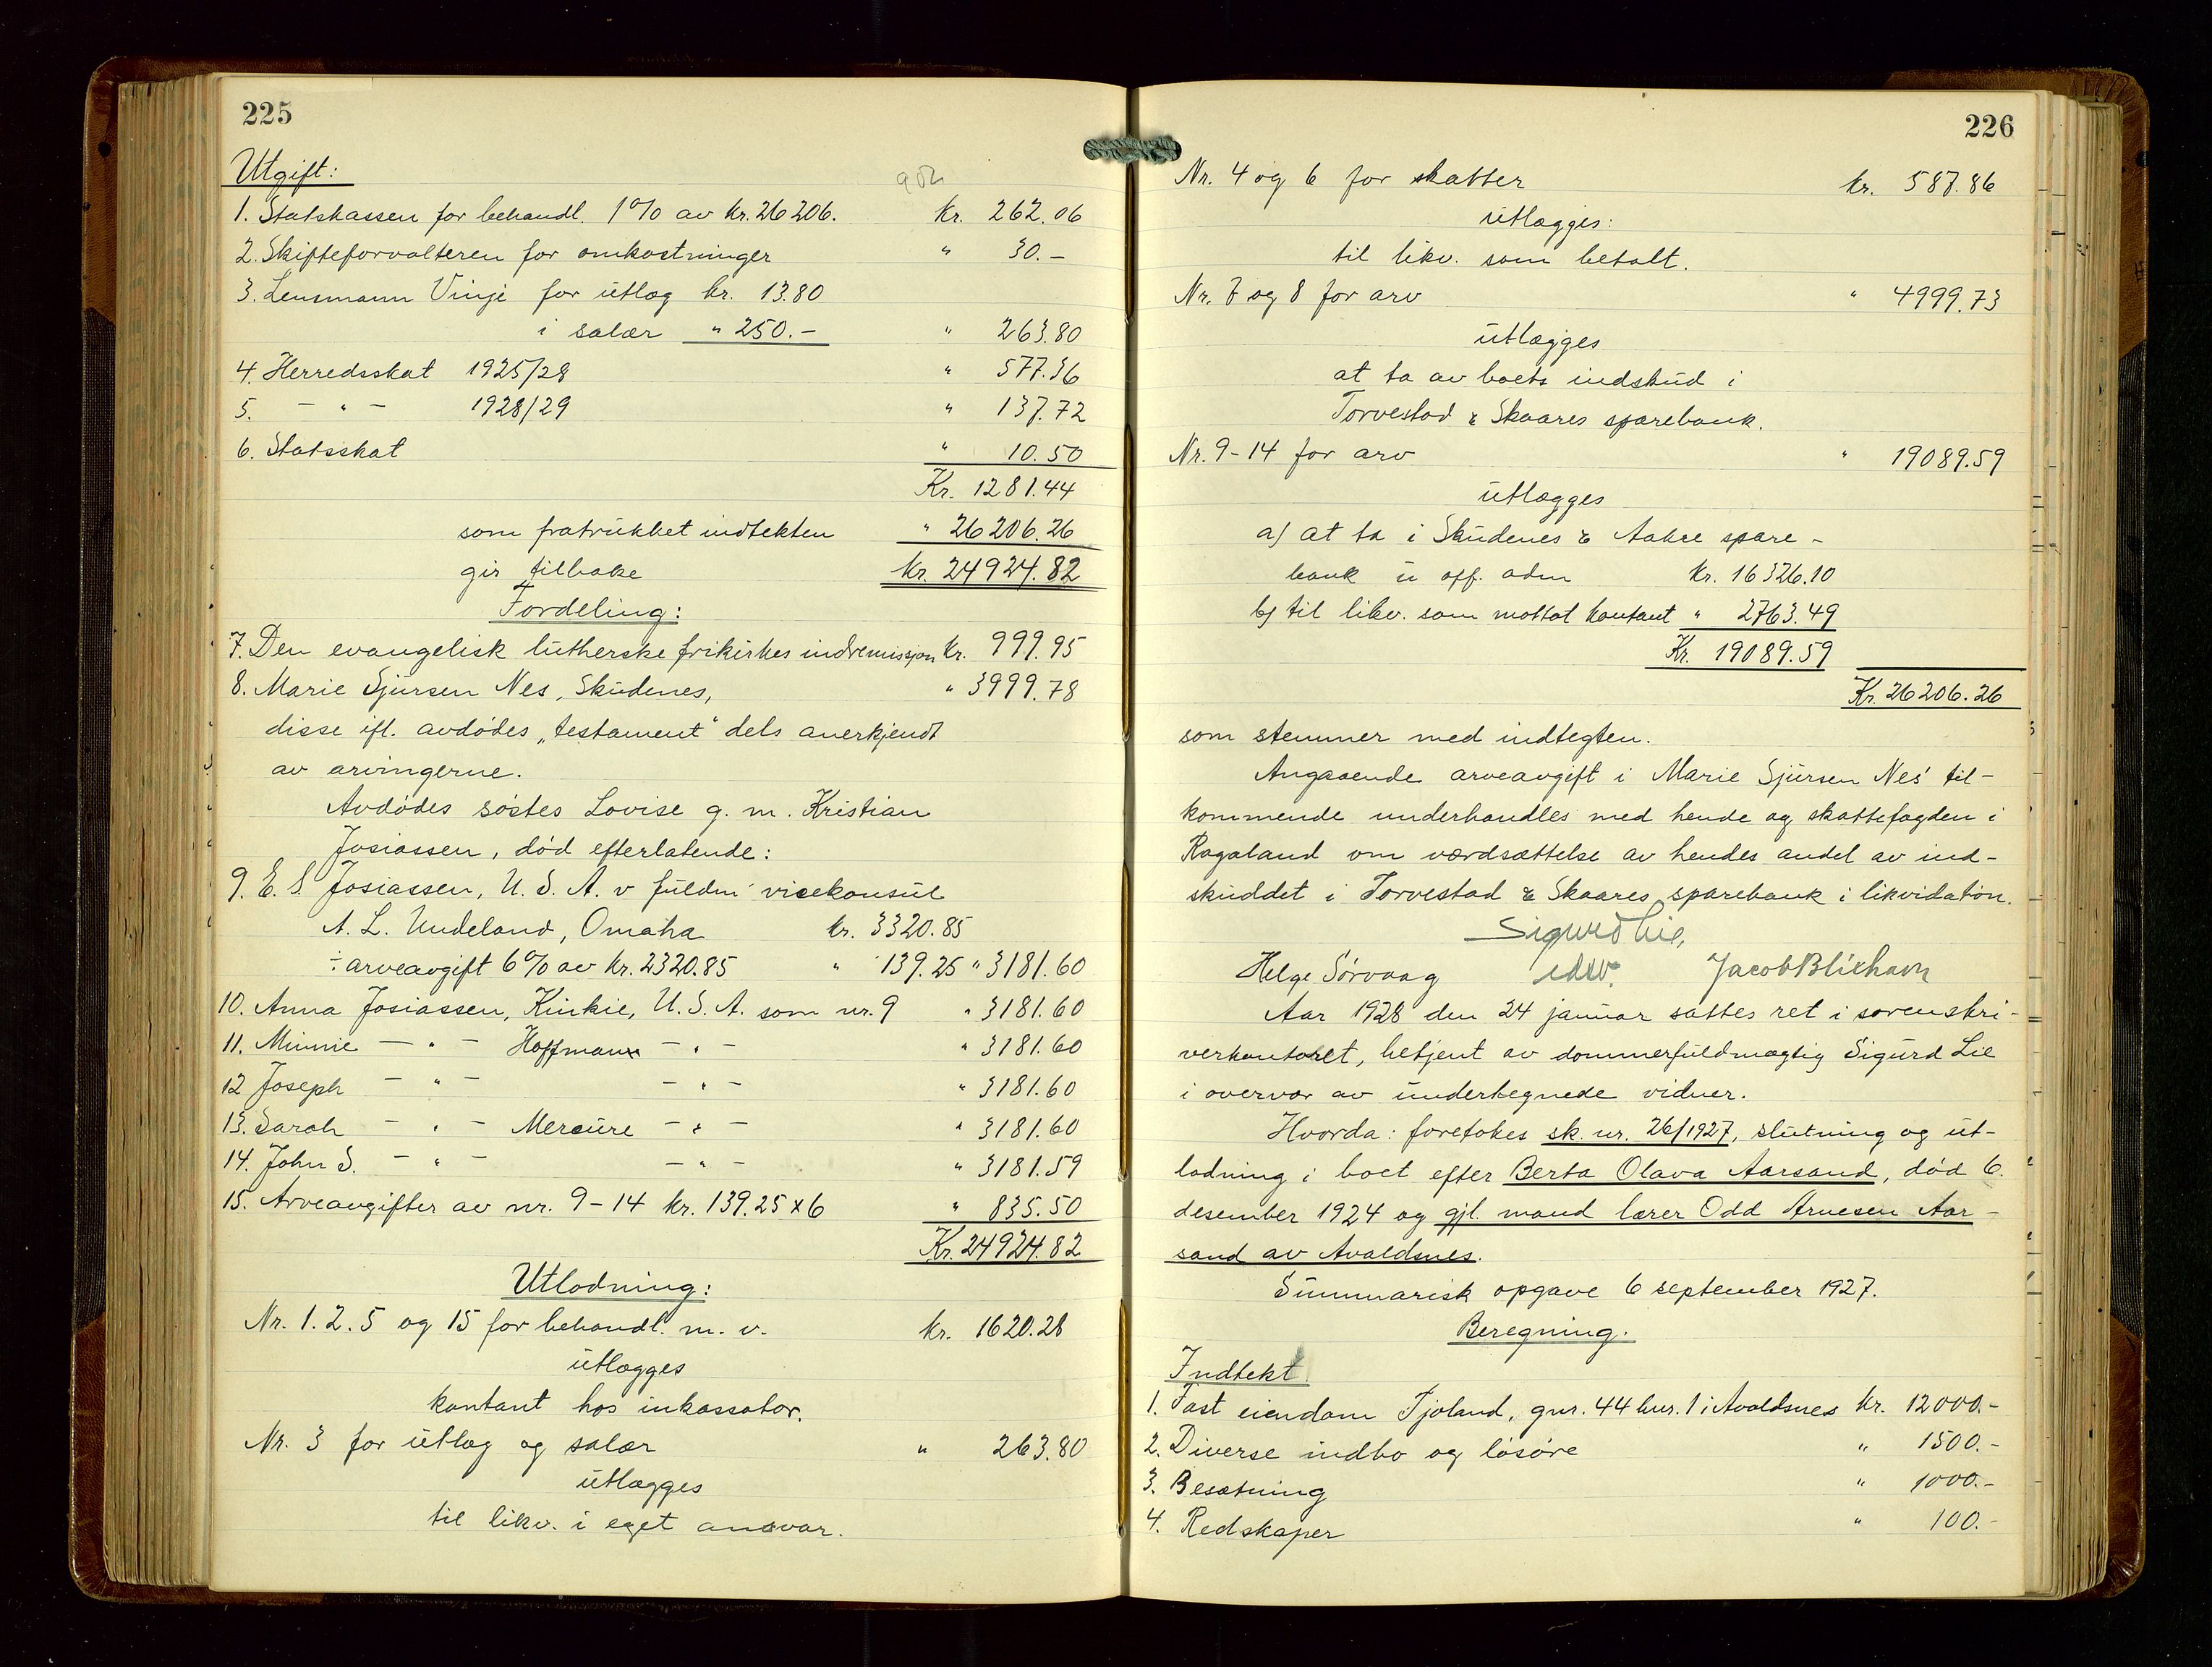 225
Utgift:
1. Statskassen for behandl. 1% av kr. 26206. kr. 262.06
2. Skifteforvalteren for omkostninger " 30.-
3. Lensmann Vinje for utlæg kr. 13.80
i salær " 250.- " 263.80
4. Herredsskat 1925/28 " 577.36
5. - " - 1928/29 " 137.72
6. Statsskat " 10.50
Kr. 1281.44
som fratrukket indtekten " 26206.26
gir tilbake kr. 24924.82
Fordeling:
7. Den evangelisk lutherske frikirkes indremissjon kr. 999.95
8. Marie Sjursen Nes, Skudenes, " 3999.78
disse ifl. avdødes „testament" dels anerkjendt
av arvingerne.
Avdødes søstes Lovise g. m. Kristian
Josiassen, død efterlatende:
9. E. S. Josiassen, U. S. A. v fuldm. vicekonsul
A. L. Undeland, Omaha kr. 3320.85
÷ arveavgift 6% av kr. 2320.85 " 139.25 " 3181.60
10. Anna Josiassen, Kinkie, U. S. A. som nr. 9 " 3181.60
11. Minnie - " - Hoffmann - " - " 3181.60
12 Joseph - " - - " - " 3181.60
13. Sarah - " - Mercure - " - " 3181.60
14. John S. - " - - " - " 3181.59
15. Arveavgifter av nr. 9-14 kr. 139.25 x 6 " 835.50
Kr. 24924.82
Utlodning:
Nr. 1. 2. 5 og 15 for behandl. m. v. kr. 1620.28
utlægges
kontant hos inkassator.
Nr. 3 for utlæg og salær " 263.80
utlægges
til likv. i eget ansvar.
226
Nr. 4 og 6 for skatter kr. 587.86
utlægges:
til likv. som betalt.
Nr. 7 og 8 for arv " 4999.73
utlægges
at ta av boets indskud i
Torvestad & Skaares sparebank.
Nr. 9-14 for arv " 19089.59
utlægges
a) at ta i Skudenes & Aakre spare-
bank u off. adm kr. 16326.10
b) til likv. som mottat kontant " 2763.49
Kr. 19089.59
Kr. 26206.26
som stemmer med indtegten.
Angaaende arveavgift i Marie Sjursen Nes' til-
kommende underhandles med hende og skattefogden i
Rogaland om værdsættelse av hendes andel av ind-
skuddet i Torvestad & Skaares sparebank i likvidation.
Sigurd Lie,
Helge Sørvaag edw. Jacob Blixhavn
Aar 1928 den 24 januar sattes ret i sorenskri-
verkontoret, betjent av dommerfuldmægtig Sigurd Lie
i overvær av undertegnede vidner.
Hvorda: foretokes sk. nr. 26/1927, slutning og ut-
lodning i boet efter Berta Olava Aarsand, død 6.
desember 1924 og gjl. mand lærer Odd Arnesen Aar-
sand av Avaldsnes.
Summarisk opgave 6 september 1927.
Beregning.
Indtekt
1. Fast eiendom Tjoland, gnr. 44 bnr. 1 i Avaldsnes kr. 12000.-
2. Diverse indbo og løsøre " 1500.-
3. Besætning " 1000.-
4. Redskaper " 100.-